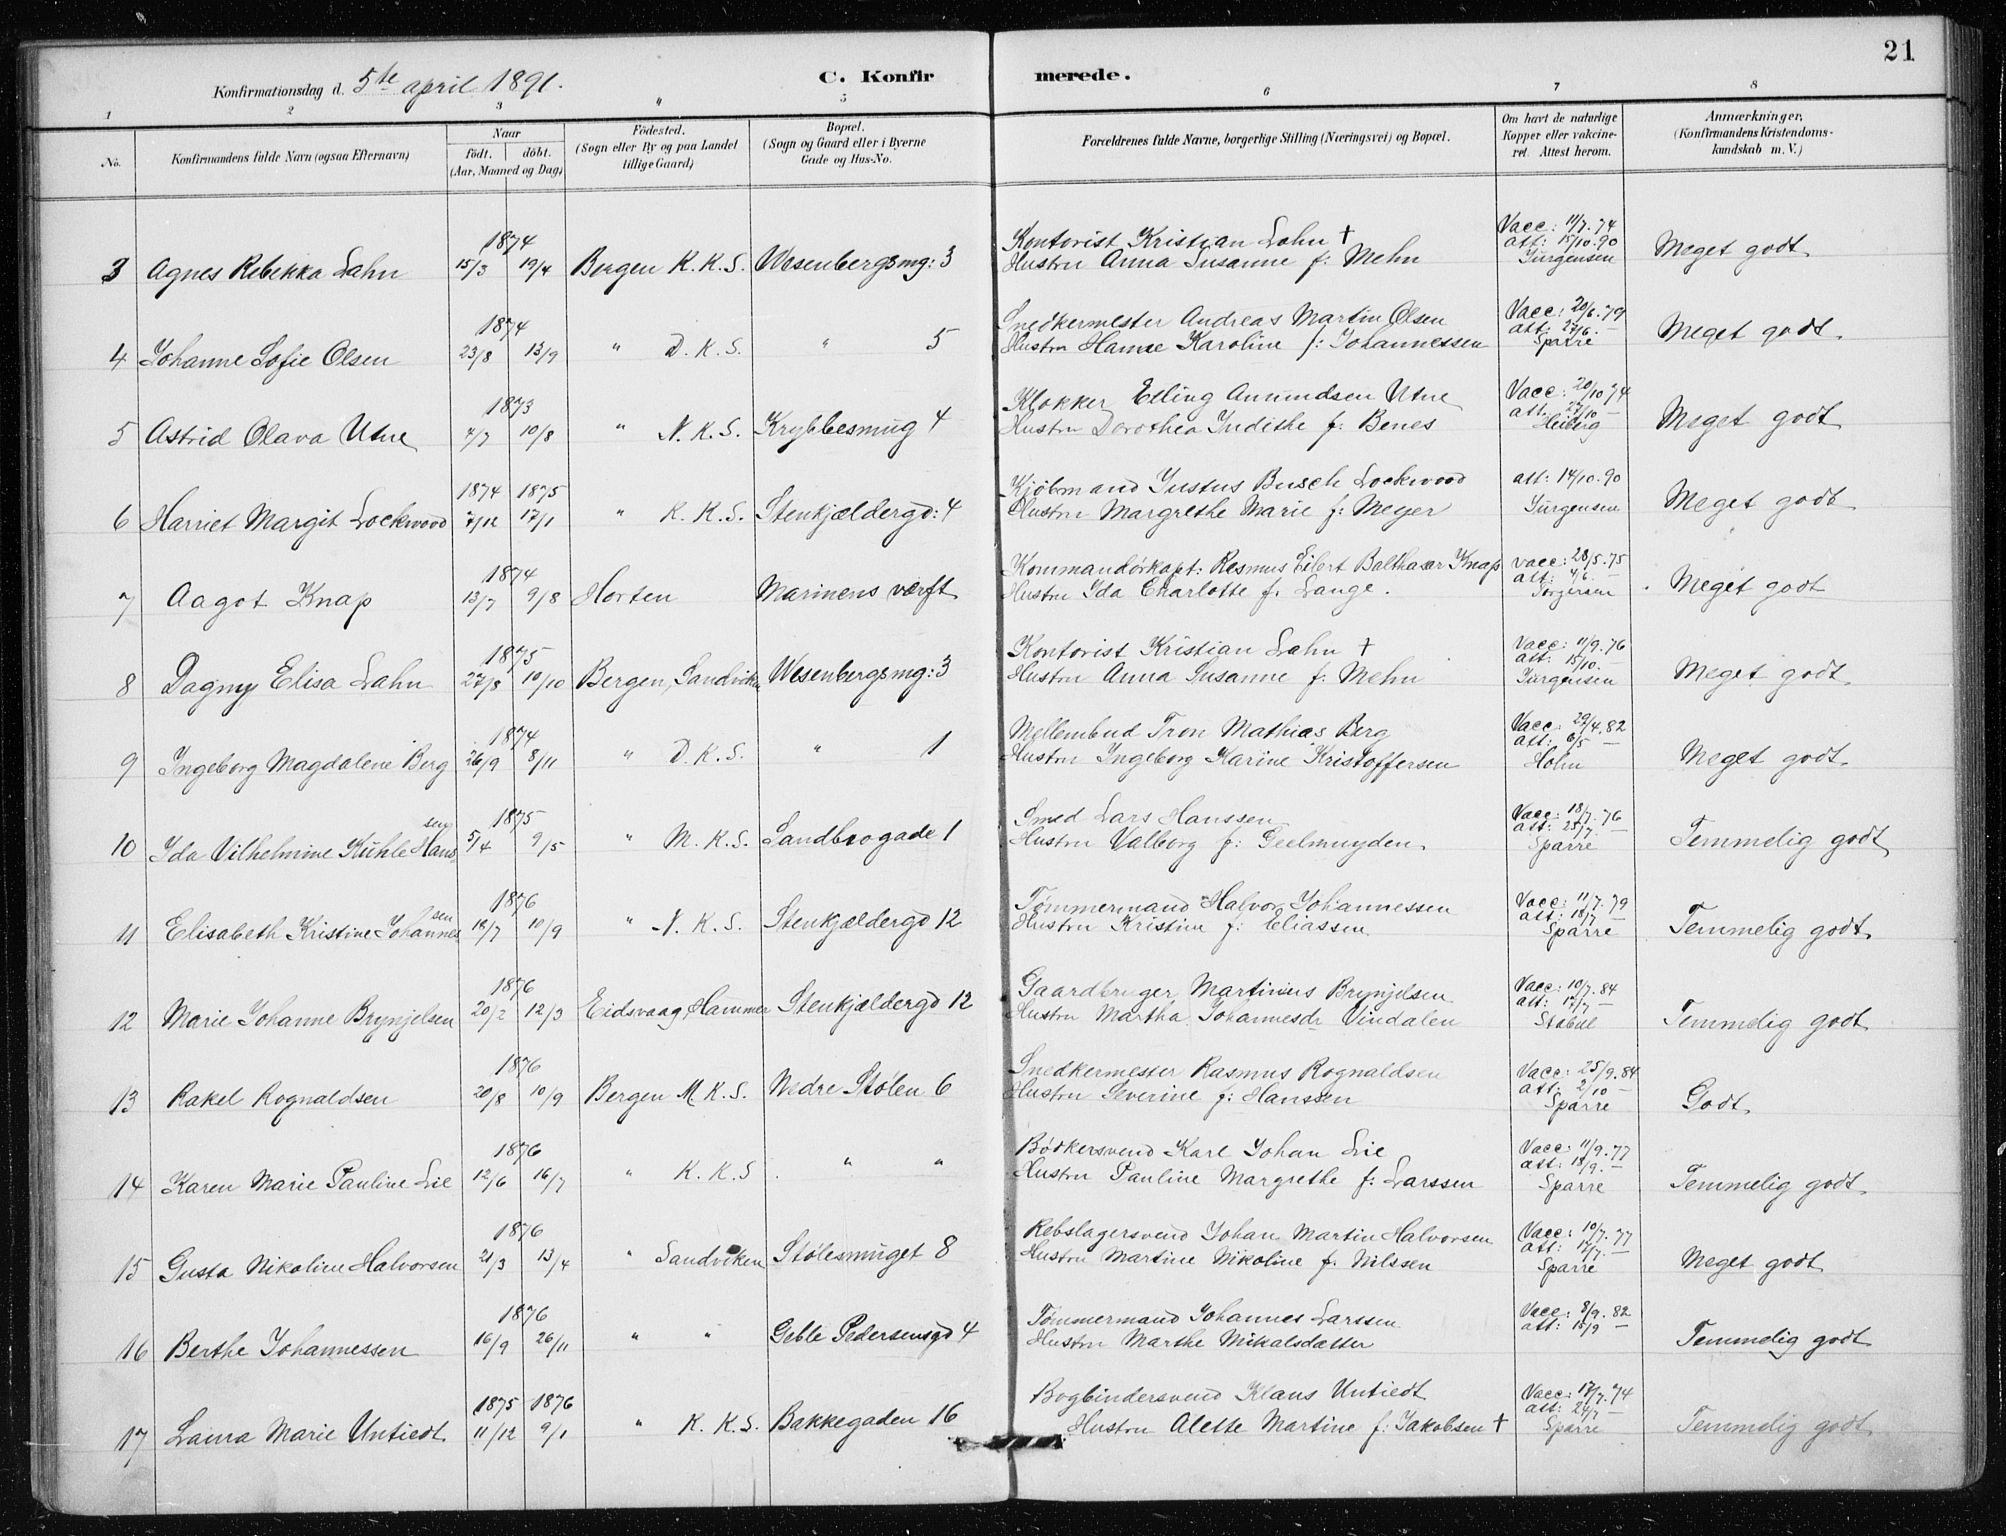 21
Konfirmationsdag d. 5te april 1891.
C. Konfirmerede.
1 2 3 " 5 6 7 8
No.
Konfirmandens fulde Navn (ogsaa Efternavn)
Naar
födt. döbt.
(Aar, Maaned og Dag)
Födested.
(Sogn eller By og paa Landet
tillige Gaard)
Bopæl.
(Sogn og Gaard eller i Byerne
Gade og Hus-No.
Forældrenes fulde Navne, borgerlige Stilling (Næringsvei) og Bopæl.
Om havt de naturlige
Kopper eller vakcine-
ret. Attest herom.
Anmærkninger,
(Konfirmandens Kristendoms-
kundskab m. V.)
1874 Kontorist Kristian Lahn † Vacc: 11/7.74
3 Agnes Rebekka Lahn 15/3 19/4 Bergen K.K.S. Wesenbergsmg: 3 Hustru Anna Susanne f: Mehn att: 15/10.90 Jürgensen Meget godt
1874 Snedkermester Andreas Martin Olsen Vacc: 20/6.79
4 Johanne Sofie Olsen 23/8 13/9 " D.K.S. " 5 Hustru Hanne Karoline f: Johannessen att: 27/6. — Sparre Meget godt.
1873 Klokker Elling Amundsen Utne Vacc: 20/10 74
5 Astrid Olava Utne 4/7 10/8 " N.K.S. Krybbesmug 4 Hustru Dorothea Judithe f: Benes att: 27/10 — Heiberg Meget godt
1874 1875 Kjöbmand Justus Busch Lockwood att: 14/10.90
6 Harriet Margit Lockwood 7/12 17/1 " K.K.S. Stenkjældergd: 4 Hustru Margrethe Marie f: Meyer Jürgensen Meget godt
1874 Kommandörkapt: Rasmus Eilert Balthazer Knap vacc: 28/5.75
7 Aagot Knap 13/7 9/8 Horten Marinens værft Hustru Ida Charlotte f. Lange. att: 4/6. — Torgersen Meget godt
1875 Kontorist Kristian Lahn † Vacc: 11/9.76
8 Dagny Elisa Lahn 27/8 10/10 Bergen, Sandviken Wesenbergsmg: 3 Hustru Anna Susanne f: Mehn att: 15/10. — Jürgensen Meget godt.
1874 Mellembud Tron Mathias Berg Vacc: 29/4.82
9 Ingeborg Magdalene Berg 26/9 8/11 " D.K.S. " 1 Hustru Ingeborg Karine Kristoffersen att: 6/5 — Holm Meget godt.
sen 1875 Smed Lars Hanssen Vacc: 18/7.76
10 Ida Vilhelmine Kuhle Hans 5/4 9/5 " M.K.S. Sandbrogade 1 Hustru Valborg f: Geelmuyden. att: 25/7. — Sparre Temmelig godt
sen 1876 Tömmermand Halvor Johannessen Vacc: 11/7.79
11 Elisabeth Kristine Johannes 18/7 10/9 " N.K.S. Stenkjældergd 12 Hustru Kristine f: Eliassen att: 18/7 — Sparre Temmelig godt.
1876 Gaardbruger Martinius Brynjelsen Vacc: 10/7.84
12 Marie Johanne Brynjelsen 20/2 12/3 Eidsvaag, Hammer Stenkjældergd 12 Hustru Martha Johannesdr Vindalen att: 17/7 — Stabel Temmelig godt
1876 Snedkermester Rasmus Rognaldsen Vacc: 25/9.84
13 Rakel Rognaldsen 20/8 10/9 Bergen M.K.S. Nedre Stølen 6 Hustru Severine f: Hanssen att: 2/10 — Sparre Godt.
1876 Bödkersvend Karl Johan Lie Vacc: 11/9.77
14 Karen Marie Pauline Lie 12/6 16/7 " K.K.S. " " Hustru Pauline Margrethe f: Larssen att: 18/9. — Sparre Temmelig godt.
1876 Rebslagersvend Johan Martin Halvorsen Vacc: 10/7.77
15 Gusta Nikoline Halvorsen 21/3 13/4 " Sandviken Stølesmuget 8 Hustru Martine Nikoline f. Nilssen att: 17/7. — Sparre Meget godt
1876 Tømmermand Johannes Larssen Vacc: 8/9.82
16 Berthe Johannessen 16/9 26/11 " " Geble Pedersensgd 4 Hustru Marthe Mikalsdatter att: 15/9 — Temmelig godt
1875 1876 Bogbindersvend Klaus Untiedt Vacc: 17/7.74
17 Laura Marie Untiedt 11/12 9/1 " K.K.S. Bakkegaden 16 Hustru Alette Martine f: Jakobsen † att: 24/7 — Sparre Temmelig godt.